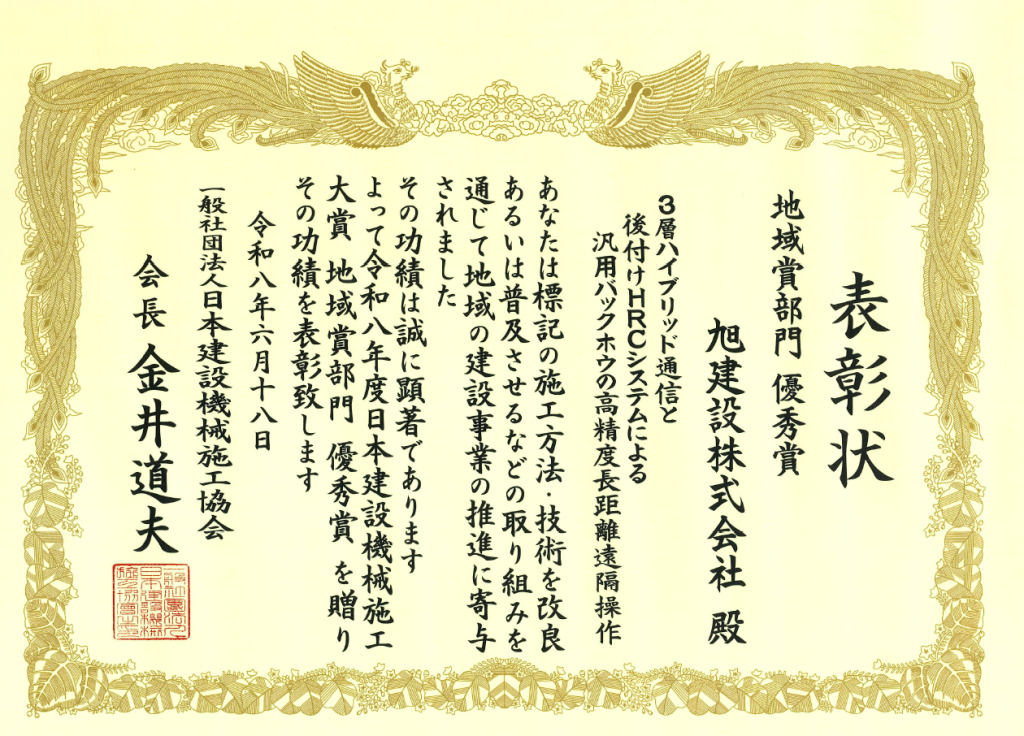 表彰状
地域賞部門 優秀賞
旭建設株式会社 殿
3層ハイブリッド通信と
後付けHRCシステムによる
汎用バックホウの高精度長距離遠隔操作
あなたは標記の施工方法・技術を改良
あるいは普及させるなどの取り組みを
通じて地域の建設事業の推進に寄与
されました
その功績は誠に顕著であります
よって令和八年度日本建設機械施工
大賞 地域賞部門 優秀賞 を贈り
その功績を表彰致します
令和八年六月十八日
一般社団法人日本建設機械施工協会
会長 金井道夫